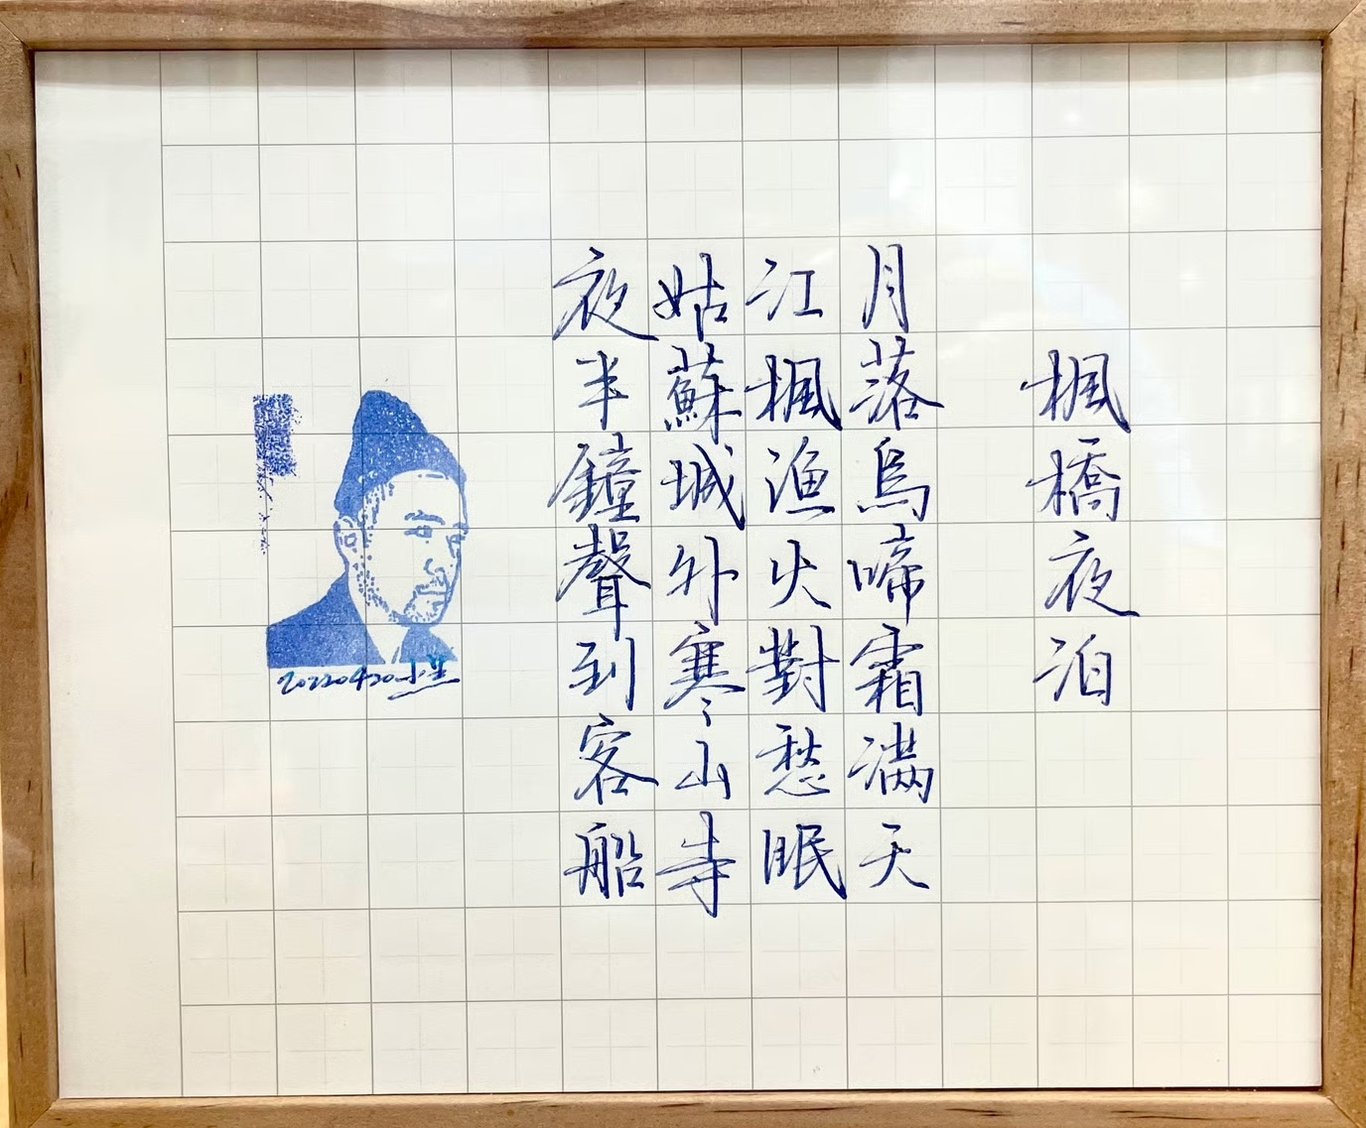 楓橋夜泊
月落烏啼霜滿天
江楓漁火對愁眠
姑蘇城外寒山寺
夜半鐘聲到客船
20220420